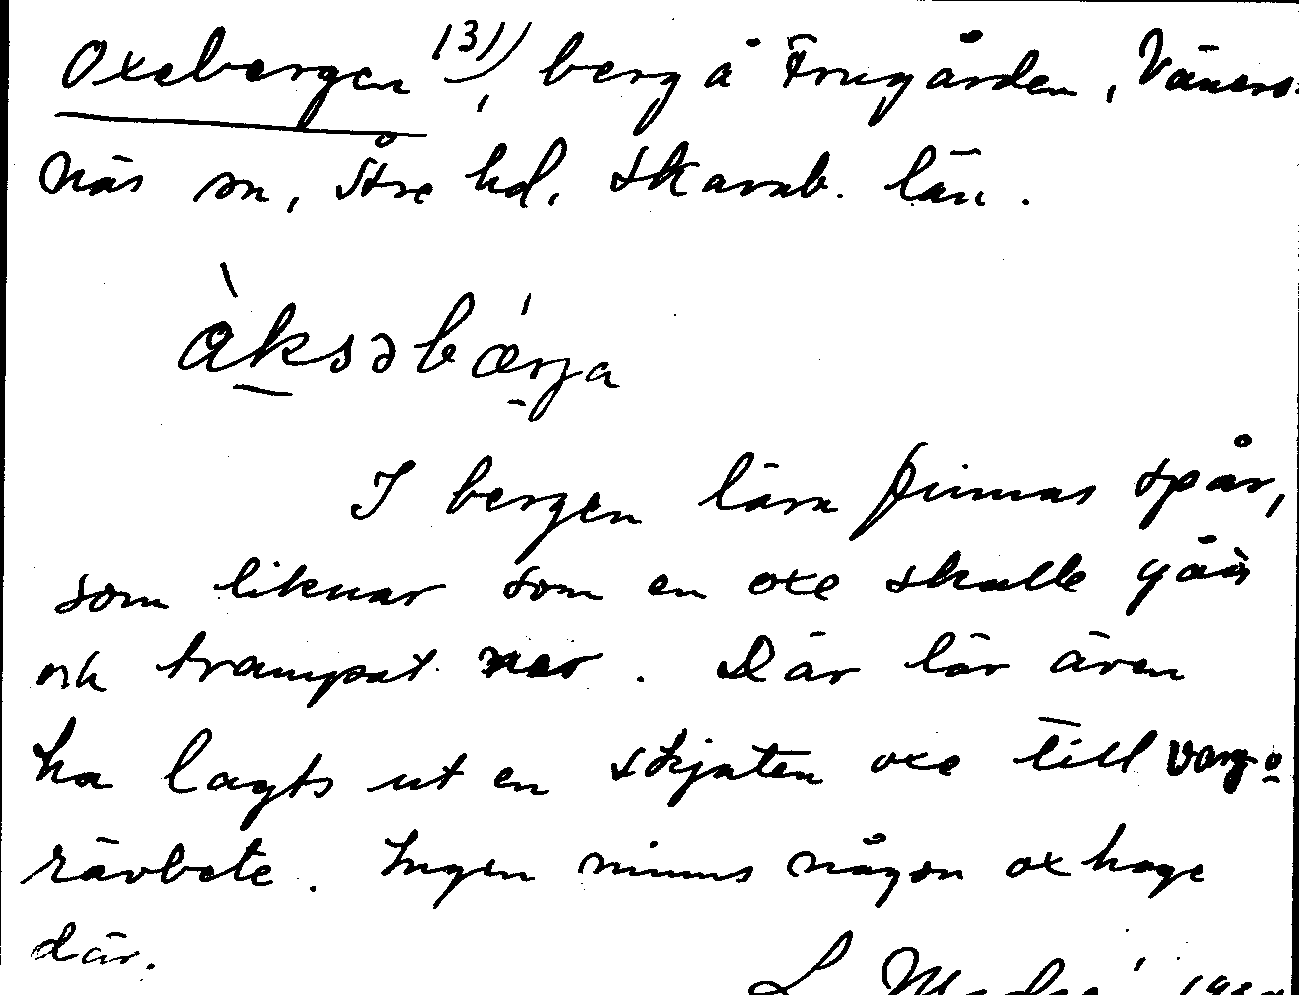 Oxebergen 131), berg å Frugården, Väners-
näs sn, Åse hd, Skarab. län.
àksəbǽrja
I bergen lära finnas spår,
som liknar som en oxe skulle gått
och trampat ner. Där lär även
ha lagts ut en skjuten oxe till varg- o
rävbete. Ingen minns någon oxhage
där.